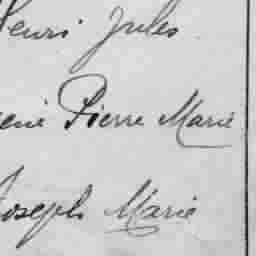 Henri Jules
Pierre Marie
Joseph Marie